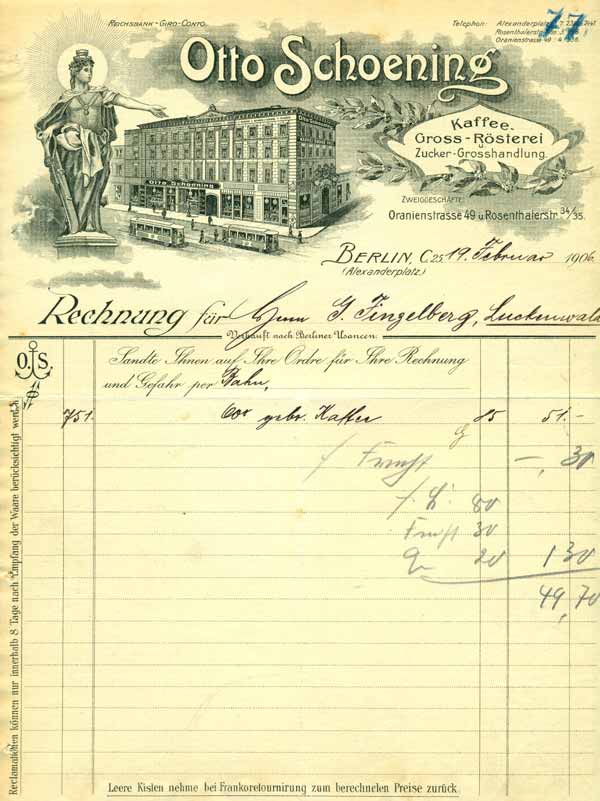 Reichsbank-Giro-Conto.
Telephon: Alexanderplatz
Rosenthalerstr.
Oranienstrasse 49
77
Otto Schoening
Kaffee-
Gross-Rösterei
u
Zucker-Grosshandlung.
Otto Schoening
Zweiggeschäfte:
Oranienstrasse 49 u. Rosenthalerstr. 34/35.
Berlin, C. 25 19. Februar 1906.
(Alexanderplatz)
Rechnung für Herrn G. Tingelberg, Luckenwald
Verkauft nach Berliner Usancen.
O. S.
Sandte Ihnen auf Ihre Ordre für Ihre Rechnung
und Gefahr per Bahn,
751. gebr. Kaffee 85 51.-
Fracht -,30
80
Fracht 30
20 130
49,70
Reclamationen können nur innerhalb 8 Tage nach Empfang der Waare berücksichtigt werden.
Leere Kisten nehme bei Frankoretournirung zum berechneten Preise zurück.